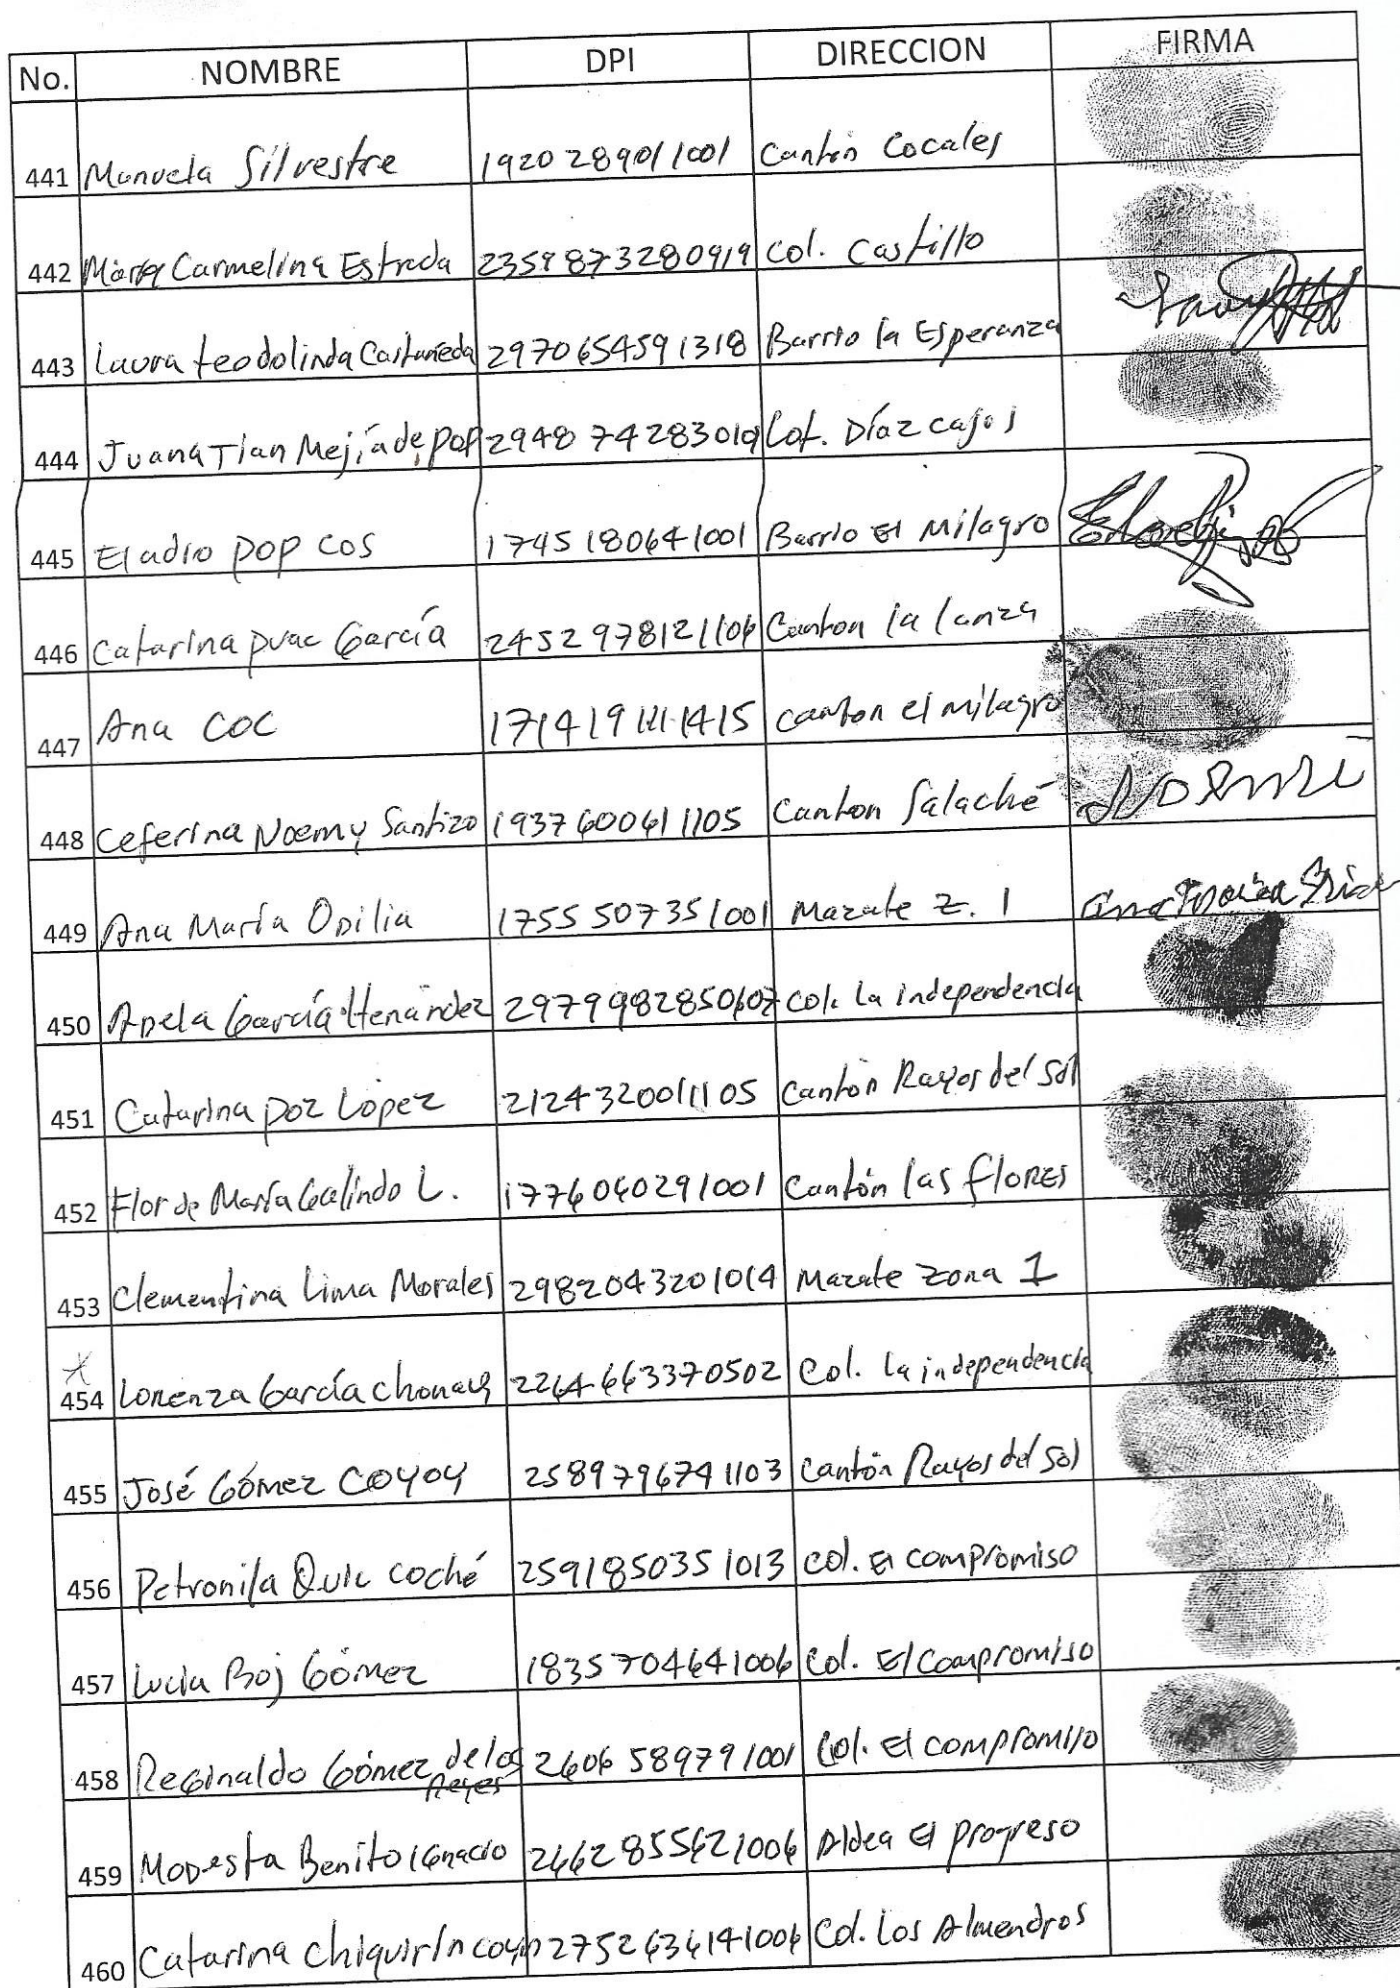 No. NOMBRE DPI DIRECCION FIRMA
441 Manuela Silvestre 1920 28901 1001 Cantón Cocales
442 María Carmelina Estrada 2359873280919 Col. Castillo
443 Laura teodolinda Castañeda 2970654591318 Barrio la Esperanza
444 Juana Tian Mejía de Pop 2948 74283 Lot. Díaz casos
445 Eladio Pop Cos 1745 180641001 Barrio El Milagro
446 Catarina puac García 2452 97812 1106 Canton la lanza
447 Ana COC 171419 1111415 canton el milagro
448 Ceferina Noemy Santizo 1937600611105 Canton Salaché
449 Ana María Odilia 1755507351001 Mazate Z. 1
450 Adela García Henández 2979982850607 Col. La independencia
451 Catarina poz López 2124320011105 Cantón Rayos del Sol
452 Flor de María Galindo L. 1776060291001 Cantón las flores
453 Clementina Lima Morales 2982043201014 Mazate zona 1
454 Lorenza García 2264663370502 Col. La independencia
455 José Gómez COYOY 2589796741103 Cantón Rayos del Sol
456 Petronila Quic coché 2591850351013 Col. El compromiso
457 Lucía Boj Gómez 1835704641006 Col. El Compromiso
458 Reginaldo Gómez de los Reyes 2606 589791001 Col. El compromiso
459 Modesta Benito Ignacio 2662855621006 Aldea El progreso
460 Catarina Chiquirín 2752636141006 Col. Los Almendros